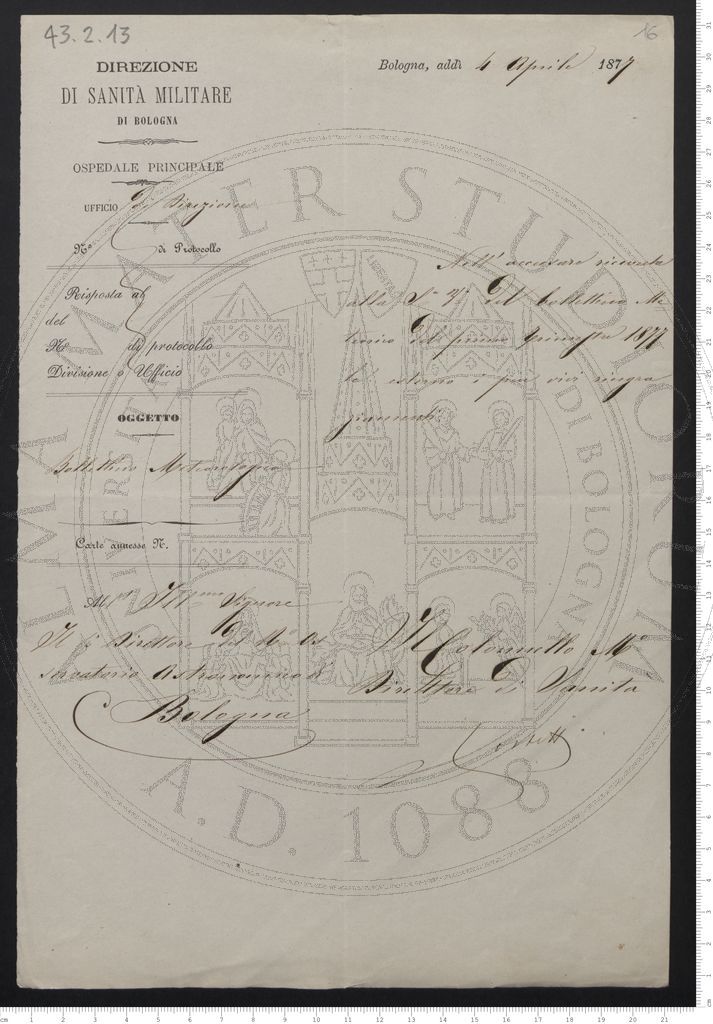 43.2.13
16
DIREZIONE
DI SANITÀ MILITARE
DI BOLOGNA
OSPEDALE PRINCIPALE
UFFICIO di Direzione
N° di Protocollo
Risposta al
del
N° di protocollo
Divisione o Ufficio
OGGETTO
Bollettino Meteorologico
Carte annesse N.
Bologna, addì 4 Aprile 1877
Nell' accusare ricevuta
alla S. V. del bollettino Me
teorico del primo trimestre 1877
le esterno i più vivi ringra
ziamenti
Al Ill Signore
Il Direttore del Os
servatorio Astronomico di
Bologna
Il Colonnello M
Direttore di Sanità
ALMA MATER STUDIORUM
UNIVERSITÀ DI BOLOGNA
LIBERTAS
A.D. 1088